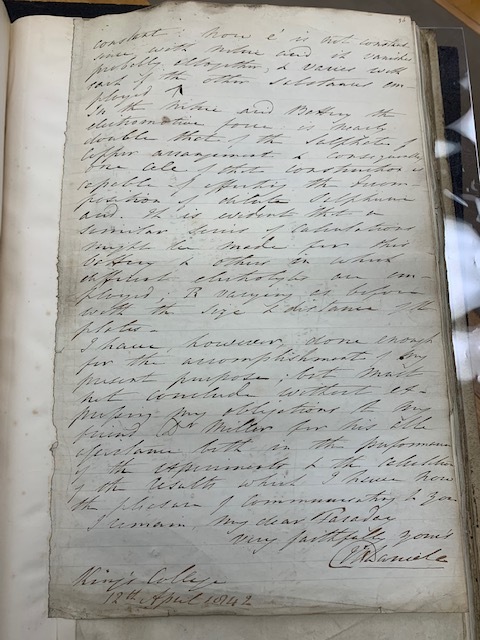 constant: now e' is not constant
since with nitric acid it vanishes
probably altogether, & varies with
each of the other substances em-
ployed
In the Nitric acid Battery the
electromotive force is nearly
double that of the Sulphate of
Copper arrangement & consequently
one Cell of that construction is
capable of effecting the decom-
position of dilute Sulphuric
acid. It is evident that a
similar series of Calculations
might be made for this
battery & others in which
different electrolytes are em-
ployed, R varying as before
with the size & distance of the
plates.
I have, however, done enough
for the accomplishment of my
present purpose, but must
not conclude without ex-
pressing my obligations to my
friend Dr Miller for his able
assistance both in the performance
of the experiments & the calculation
of the results which I have now
the pleasure of communicating to you
I remain My dear Faraday
very faithfully yours
JF Daniell
King's College
12th April 1842